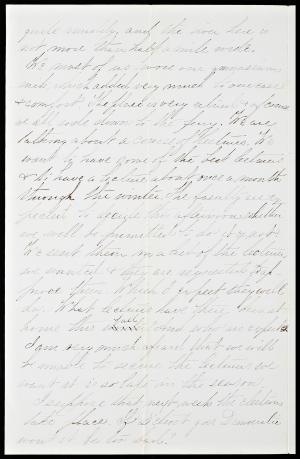 quite muddy, and the river here is
not more than half a mile wide.
We most of us wore our gymnasium
suits, which added very much to our ease
& comfort. The place is very retired & of course
we all rode down to the ferry. We are
talking about a course of lectures. We
want to have some of the best lecturers
& to have a lecture about once a month
through the winter. The faculty are ex-
pected to decide this afternoon whether
we will be permitted to do it or not.
We sent them in a list of the lecturers
we wanted & they are requested to ap-
prove them which I expect they will
do. What lectures have they had at
home this fall and who are expected
I am very much afraid that we will
be unable to secure the lecturers we
want it is so late in the season.
I suppose that next week the elections
take place. If Detroit goes Democratic
wont it be too bad?